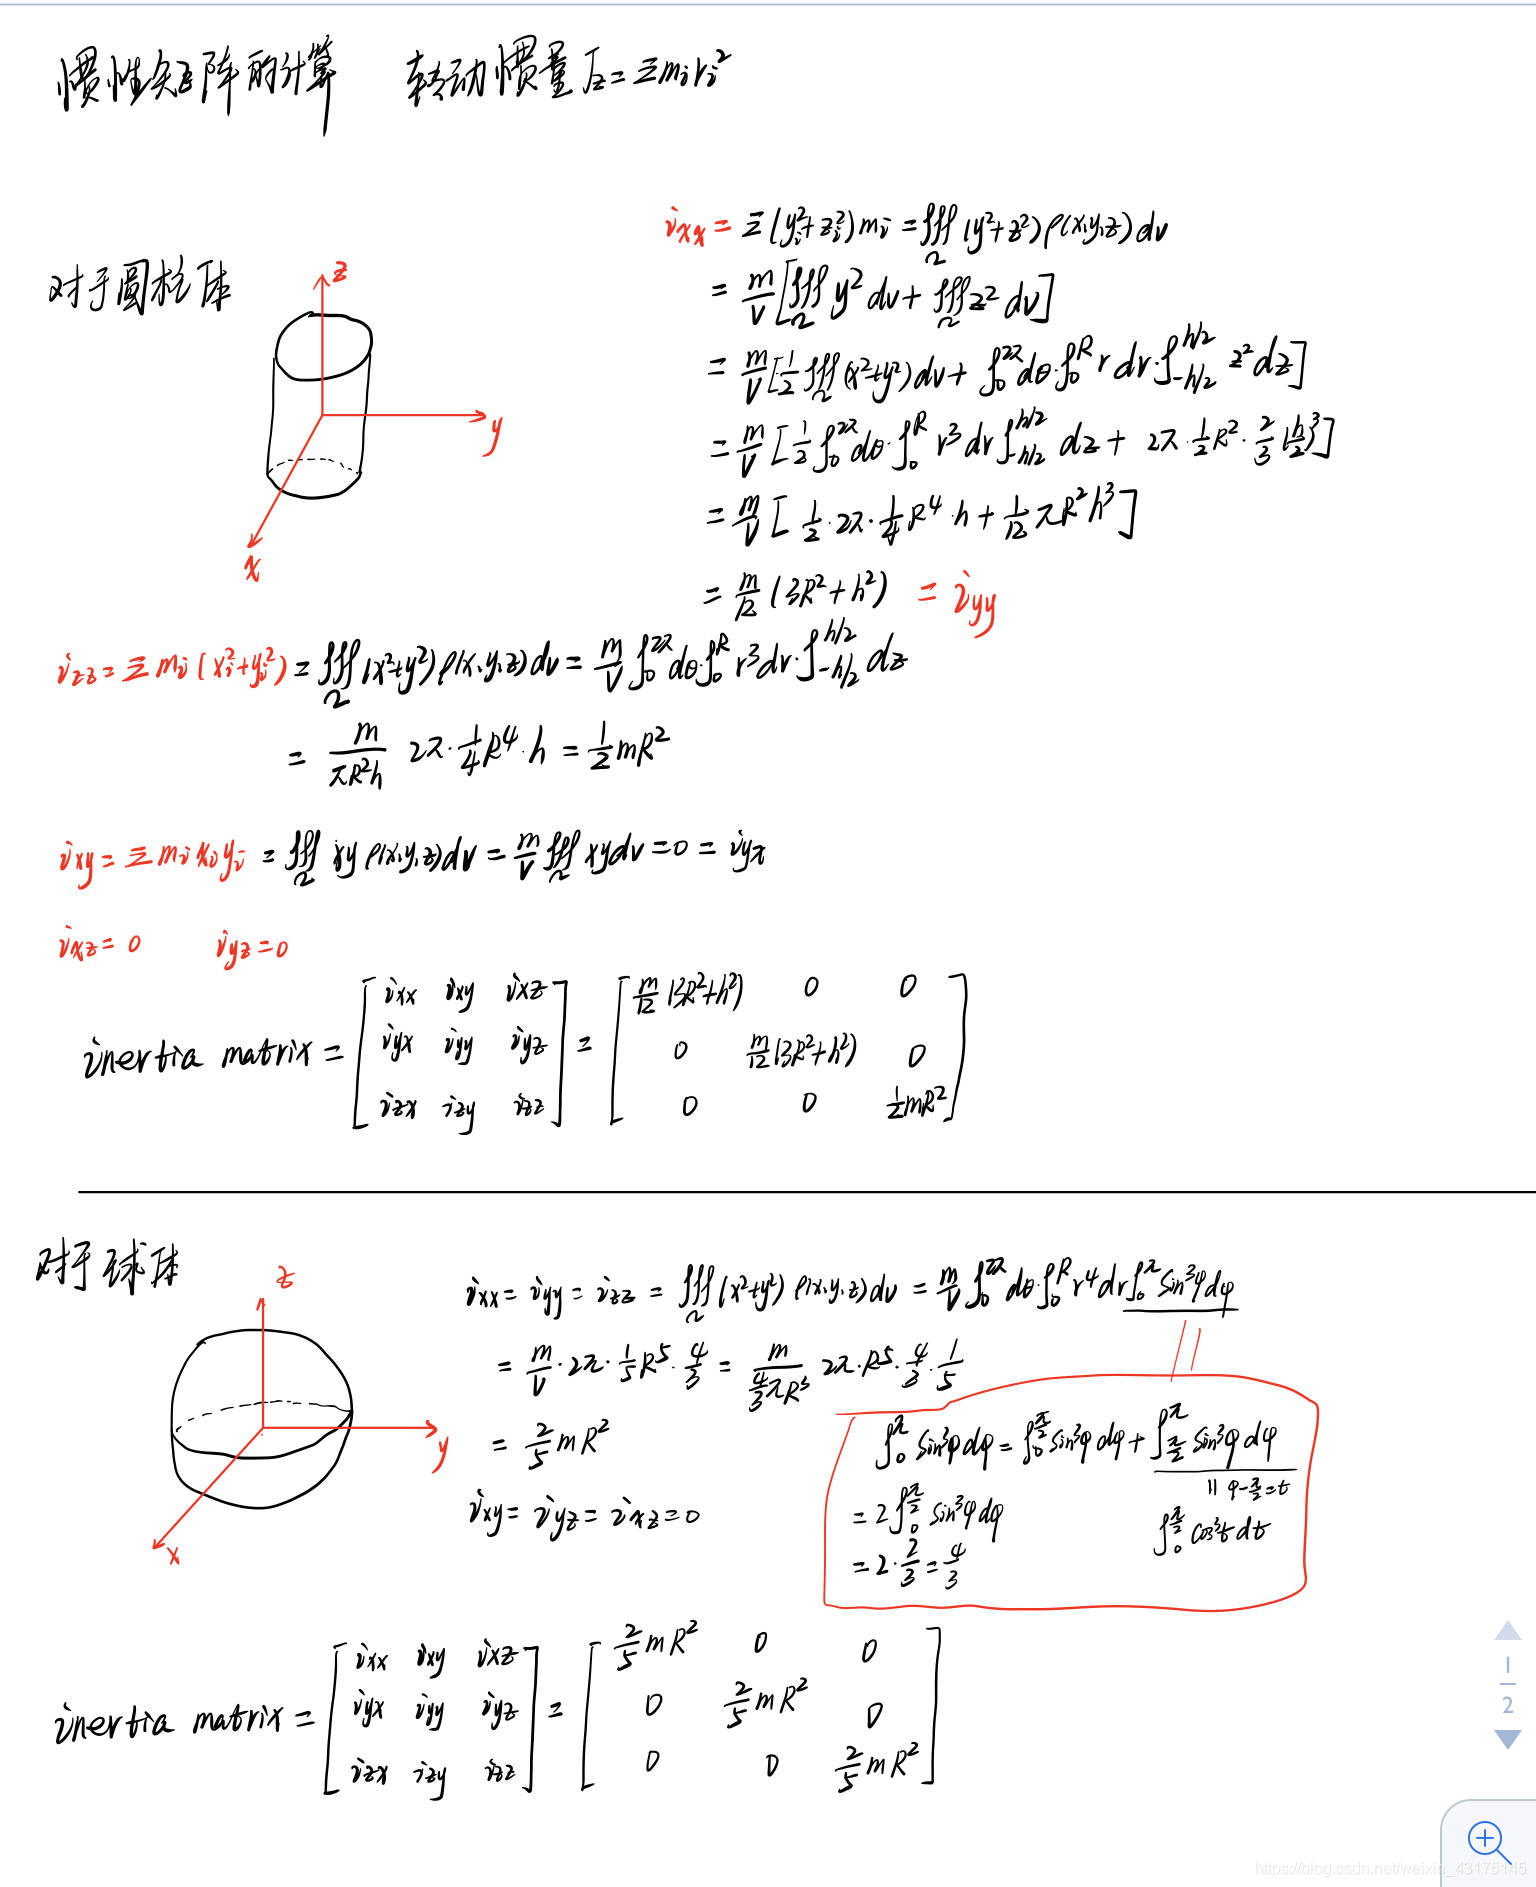 惯性矩阵的计算 转动惯量 Jz = Σmiri²
对于圆柱体
z
y
x
ixx = Σ(yi²+zi²)mi = ∭Ω (y²+z²)ρ(x,y,z)dv
= m/V [∭Ω y² dv + ∭Ω z² dv]
= m/V [1/2 ∭Ω (x²+y²)dv + ∫₀^2π dθ·∫₀^R r dr·∫_-h/2^h/2 z² dz]
= m/V [1/2 ∫₀^2π dθ·∫₀^R r³ dr ∫_-h/2^h/2 dz + 2π·1/2 R²·2/3 (h/2)³]
= m/V [1/2·2π·1/4 R⁴·h + 1/12 πR²h³]
= m/12 (3R²+h²) = iyy
izz = Σmi(xi²+yi²) = ∭Ω (x²+y²)ρ(x,y,z)dv = m/V ∫₀^2π dθ·∫₀^R r³dr·∫_-h/2^h/2 dz
= m/πR²h 2π·1/4 R⁴·h = 1/2 mR²
ixy = Σmixiyi = ∭Ω xy ρ(x,y,z)dv = m/V ∭Ω xydv = 0 = iyx
ixz = 0 iyz = 0
inertia matrix = [ixx ixy ixz] = [m/12(3R²+h²) 0 0]
[iyx iyy iyz] [0 m/12(3R²+h²) 0]
[izx izy izz] [0 0 1/2mR²]
对于球体
z
y
x
ixx = iyy = izz = ∭Ω (x²+y²) ρ(x,y,z)dv = m/V ∫₀^2π dθ·∫₀^R r⁴dr∫₀^π sin³φdφ
= m/V·2π·1/5 R⁵·4/3 = m/(4/3πR³) 2π·R⁵·4/3·1/5
= 2/5 mR²
ixy = iyz = ixz = 0
∫₀^π sin³φdφ = ∫₀^π/2 sin³φdφ + ∫_π/2^π sin³φdφ
= 2∫₀^π/2 sin³φdφ
= 2·2/3 = 4/3
|| φ-π/2=t
∫₀^π/2 cos³t dt
inertia matrix = [ixx ixy ixz] = [2/5 mR² 0 0]
[iyx iyy iyz] [0 2/5 mR² 0]
[izx izy izz] [0 0 2/5 mR²]
1
2
https://blog.csdn.net/weixin_43175145